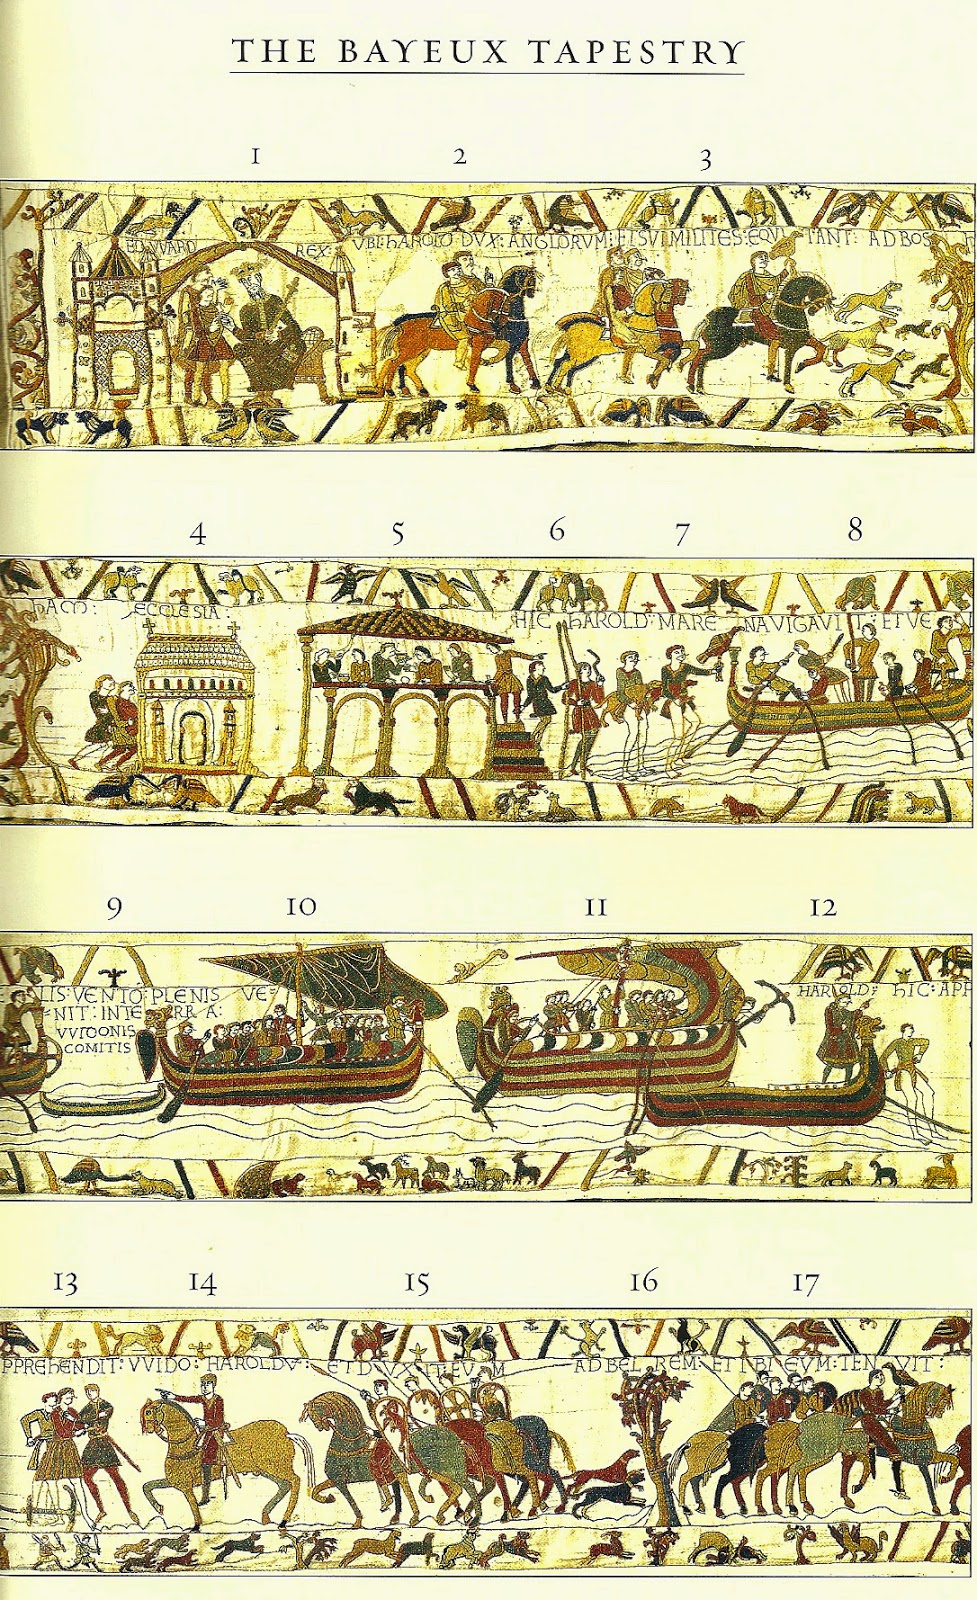 THE BAYEUX TAPESTRY
1 2 3
EDWARD REX: VBI: hAROLD DVX: ANGLORVM: ET SVI MILITES: EQVITANT: AD BOS
4 5 6 7 8
hAM: ECCLESIA: hIC hAROLD: MARE NAVIGAVIT: ET VE
9 10 11 12
LIS: VENTO: PLENIS VE=
=NIT: INTERRA:
VVIDONIS
COMITIS
HAROLD: hIC: APP
13 14 15 16 17
PPREhENDIT: VVIDO: HAROLDV: ET DVXIT: EVM AD BELREM: ET IBI EVM: TENVIT: